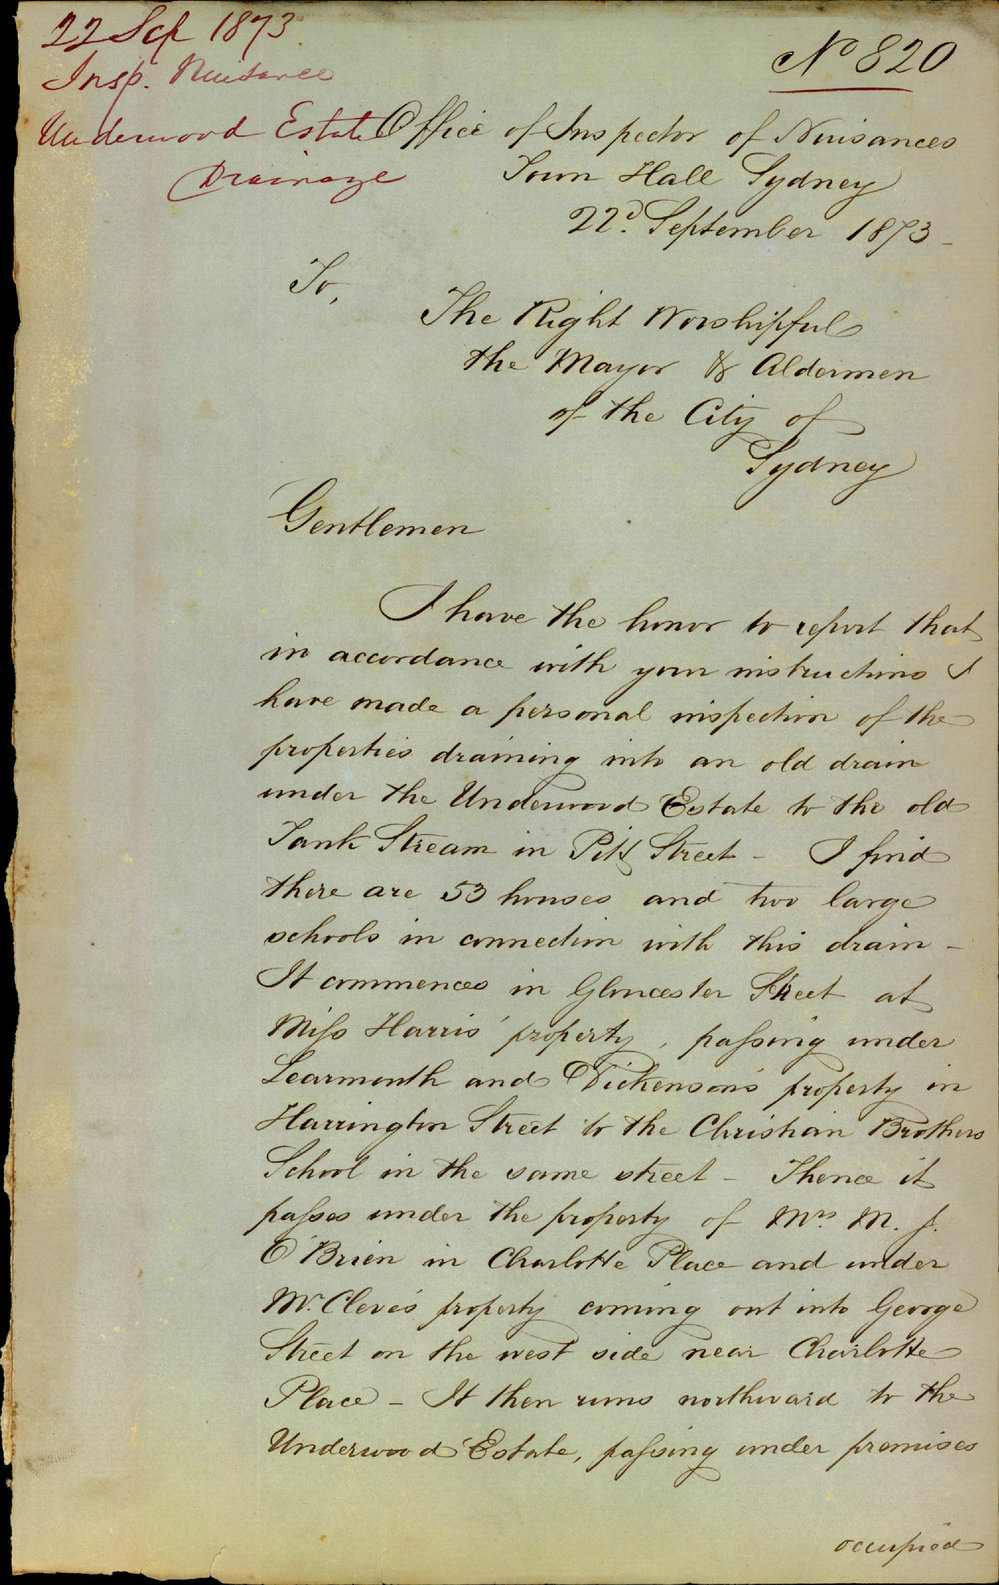 22 Sep 1873
Insp. Nuisance
Underwood Estate
Drainage
No 820
Office of Inspector of Nuisances
Town Hall Sydney
22d. September 1873 -
To,
The Right Worshipful
the Mayor & Aldermen
of the City of
Sydney
Gentlemen
I have the honor to report that
in accordance with your instructions I
have made a personal inspection of the
properties draining into an old drain
under the Underwood Estate to the old
Tank Stream in Pitt Street - I find
there are 53 houses and two large
schools in connection with this drain -
It commences in Gloucester Street at
Miss Harris' property, passing under
Learmonth and Dickenson's property in
Harrington Street to the Christian Brothers
School in the same street - Thence it
passes under the property of Mrs. M. J.
O'Brien in Charlotte Place and under
Mr. Cleve's property coming out into George
Street on the west side near Charlotte
Place - It then runs northward to the
Underwood Estate, passing under premises
occupied